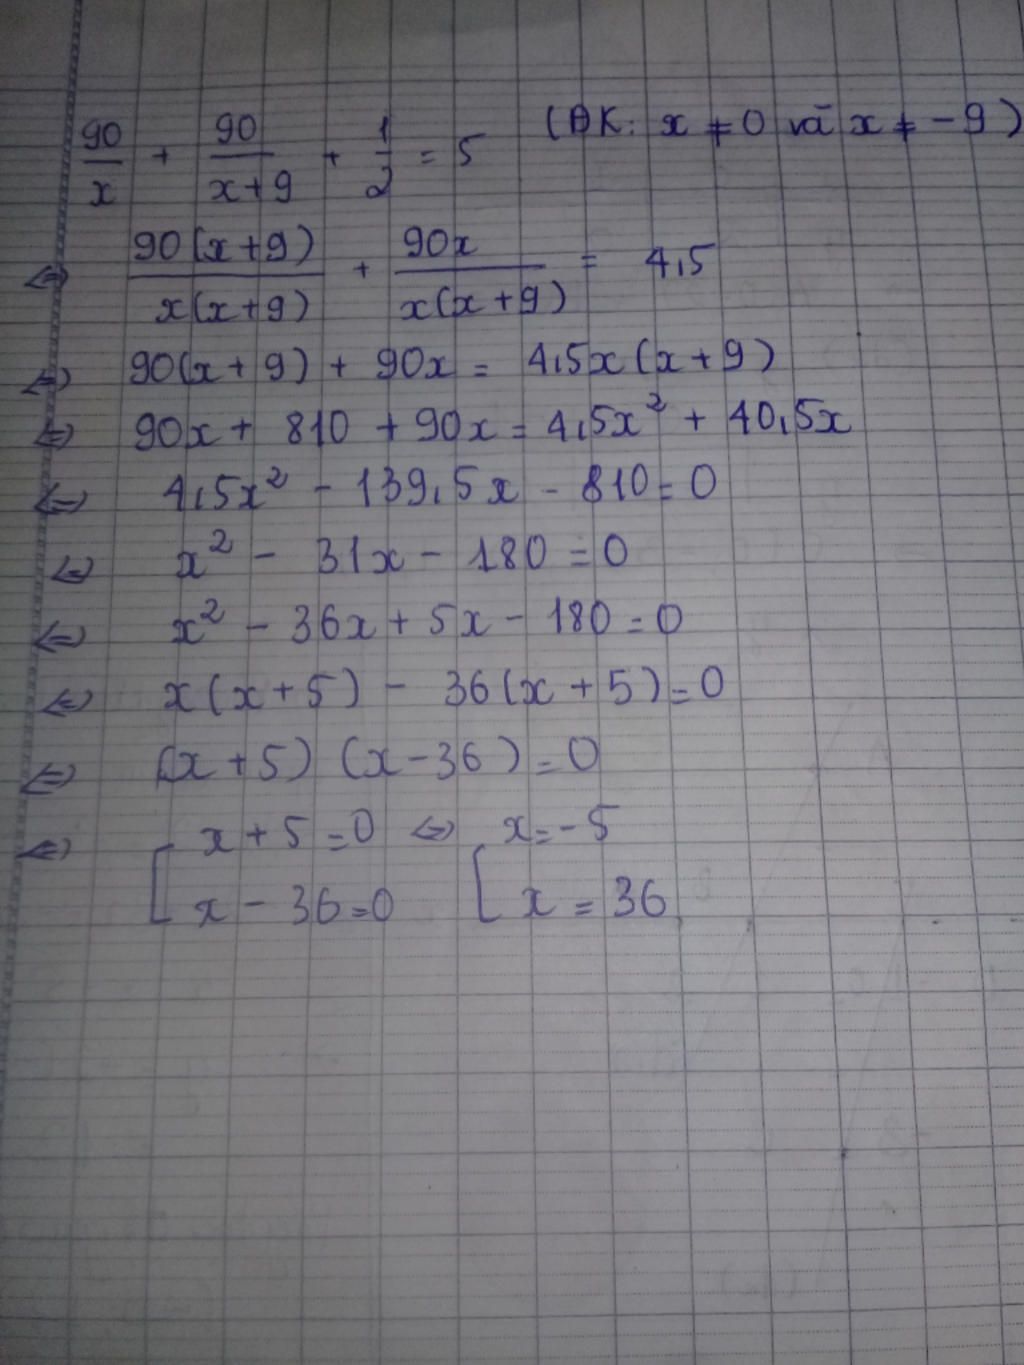 90/x + 90/(x+9) + 1/2 = 5 (ĐK: x ≠ 0 và x ≠ -9)
⇔ 90(x+9)/x(x+9) + 90x/x(x+9) = 4,5
⇔ 90(x+9) + 90x = 4,5x(x+9)
⇔ 90x + 810 + 90x = 4,5x² + 40,5x
⇔ 4,5x² - 139,5x - 810 = 0
⇔ x² - 31x - 180 = 0
⇔ x² - 36x + 5x - 180 = 0
⇔ x(x+5) - 36(x+5) = 0
⇔ (x+5)(x-36) = 0
⇔ [ x+5=0 ⇔ [ x=-5
x-36=0 x=36